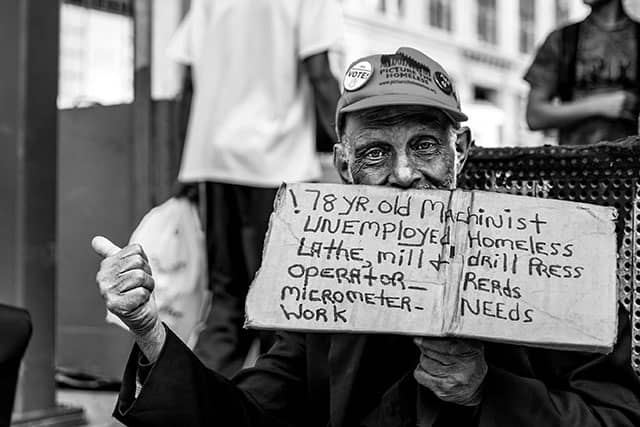 VOTE!
PICTURE THE
HOMELESS
www.picturethehomeless.org
! 78 YR. OLD MACHINIST
UNEMPLOYED HOMELESS
LATHE, MILL & DRILL PRESS
OPERATOR— READS
MICROMETER— NEEDS
WORK